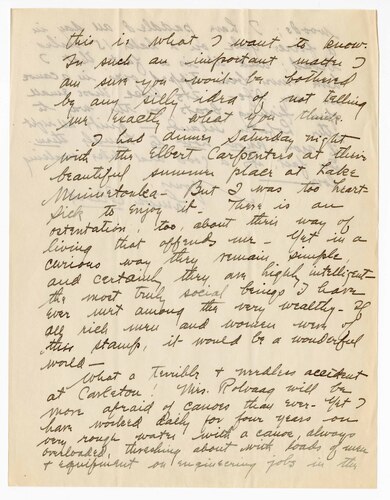 this is what I want to know.
In such an important matter I
am sure you won't be bothered
by any silly idea of not telling
me exactly what you think.
I had dinner Saturday night
with the Elbert Carpenters at their
beautiful summer place at Lake
Minnetonka - But I was too heart-
sick to enjoy it - There is an
ostentation, too, about their way of
living that offends me - Yet in a
curious way they remain simple,
and certainly they are highly intelligent -
the most truly social beings I have
ever met among the very wealthy - If
all rich men and women were of
this stamp, it would be a wonderful
world -
What a terrible + needless accident
at Carleton. Mrs. Rolvaag will be
more afraid of canoes than ever - Yet I
have worked daily for four years on
very rough water with a canoe, always
overloaded, threshing about with loads of men
+ equipment on engineering jobs in the